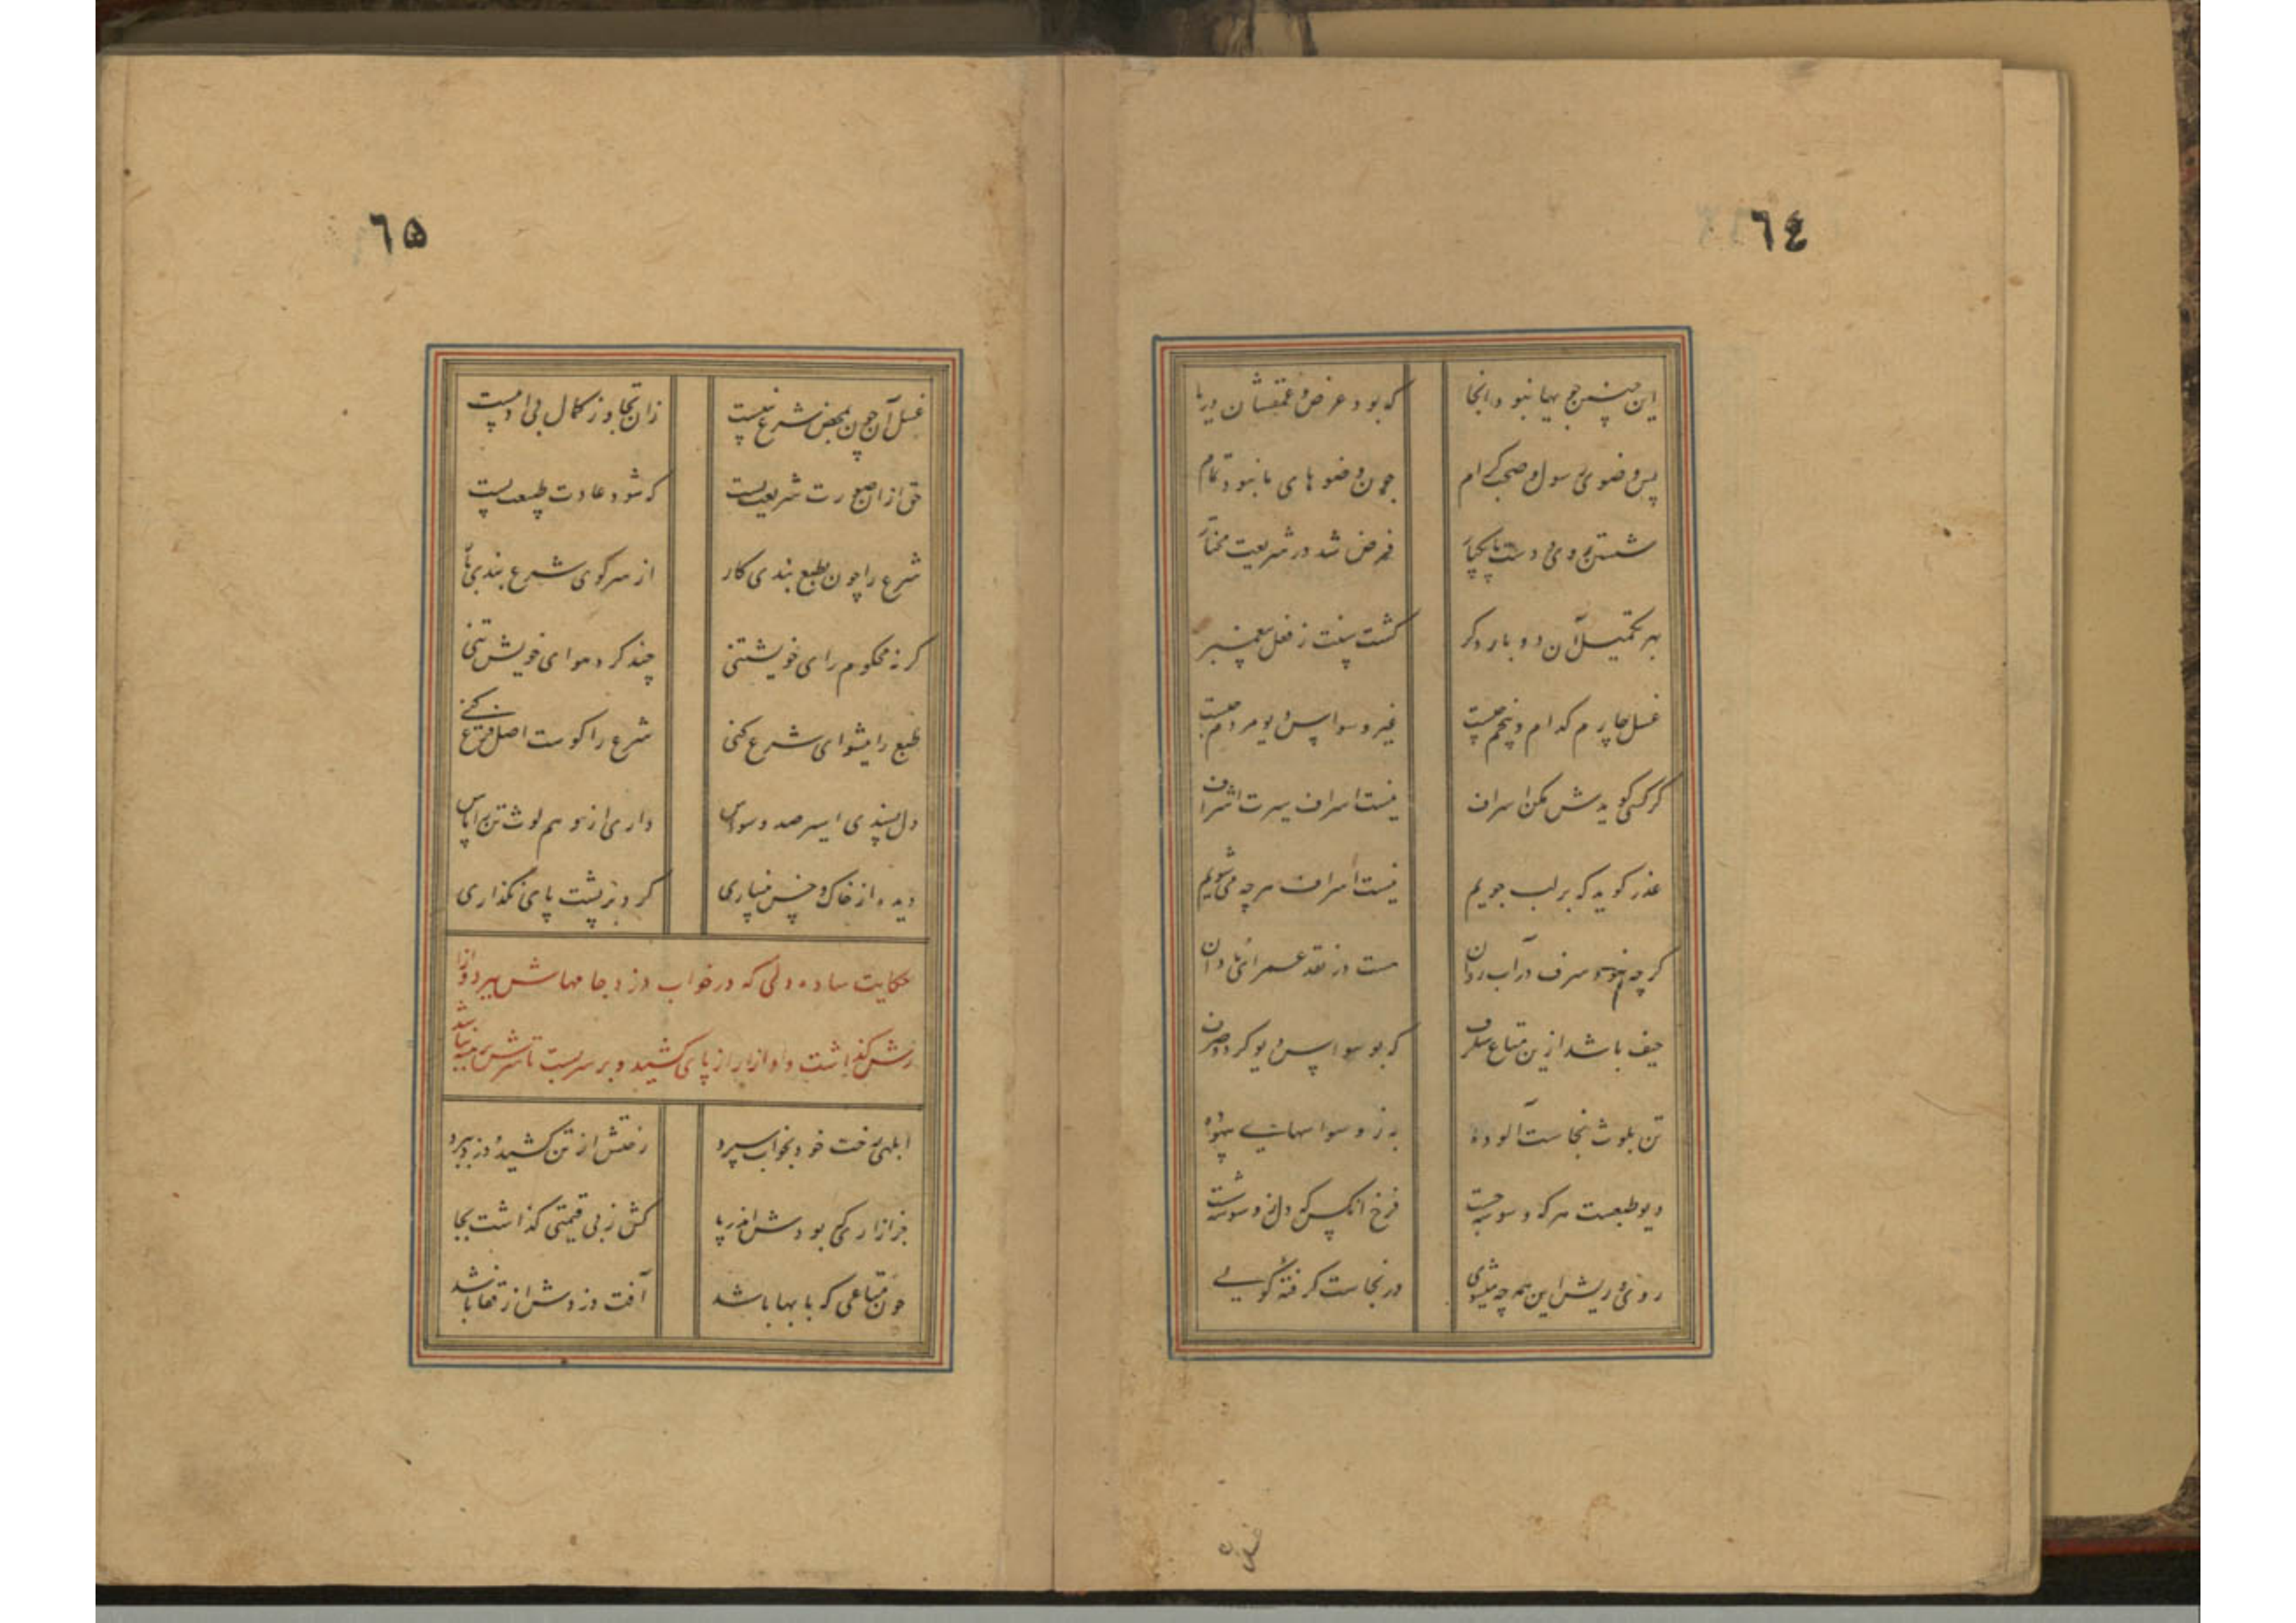 ٦٤
این چنین حجها نبود آنجا
که بود عرض و عمقشان دریا
پس وضوی رسول و صحب کرام
چون وضوهای ما نبود تمام
شستن روی و دست و پا یکبار
فرض شد در شریعت مختار
بهر تکمیل آن دو بار دکر
کشت سنت ز فعل پیغمبر
غسل چارم کدام و پنجم چیست
غیر وسواس دیو مردم نیست
کر کسی کویدش مکن اسراف
نیست اسراف سیرت اشراف
عذر کوید که بر لب جویم
نیست اسراف هر چه می شویم
کر چه نبود سرف در آب روان
هست در نقد عمر ای نادان
حیف باشد ازین متاع شکرف
که بوسواس دیو کردد صرف
تن بلوث نجاست آلوده
به ز وسواسهای بیهوده
دیو طبعست هر که وسوسه جست
فرخ آنکس که دل ز وسوسه شست
روی و ریش این همه چه میشویی
در نجاست کرفته کویی
غسل آن
٦٥
غسل آن چون بمحض شرع نیست
زان تجاوز کمال بی ادبیست
حق از آن صورت شریعت بست
که شود عادت طبیعت پست
شرع را چون بطبع بندی کار
از سر کوی شرع بندی بار
کر نه محکوم رای خویشتنی
چند کرد هوای خویش تنی
طبع را پیشوای شرع کنی
شرع را کوست اصل فرع کنی
دل پسندی اسیر صد وسواس
داری از وهم لوث تن را پاس
دیده از خاک و خس نپاری
کرد بر پشت پای نکذاری
حکایت ساده دلی که در خواب دزد جامهاش ببرد و ازا
رش کذاشت و او ازار از پای کشید و بر سر بست تا سرش برهنه نباشد
ابلهی رخت خود بخواب سپرد
رختش از تن کشید دزد و ببرد
جز ازاری که بودش اندر پا
کش ز بی قیمتی کذاشت بجا
چون متاعی که با بها باشد
آفت دزدش از قفا باشد